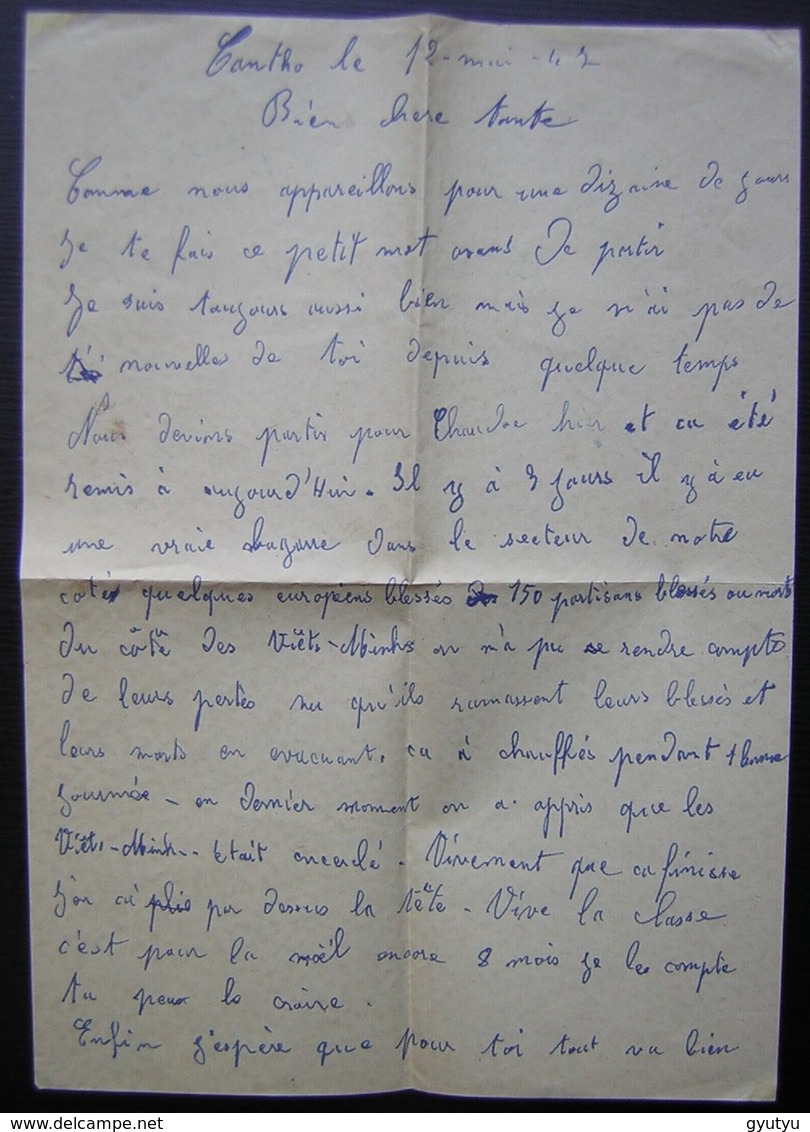 Cantho le 12-mai-47
Bien chere tante
Comme nous appareillons pour une dizaine de jours
Je te fais ce petit mot avant de partir
Je suis toujours aussi bien mais je n'ai pas de
nouvelles de toi depuis quelque temps
Nous devions partir pour Chaudoc hier et ca été
remis à aujourd'Hui. Il y à 3 jours il y à eu
une vraie bagarre dans le secteur de notre
coté quelques européens blessés 150 partisans blessés ou morts
du côtê des Viêts-Minhs on n'a pu se rendre compte
de leurs pertes vu qu'ils ramassent leurs blessés et
leurs morts en evacuant. ca à chauffés pendant 1 bonne
journée - en dernier moment on a appris que les
Viêts-Minh - etait encerclé - Vivement que ca finisse
j'en ai par dessus la tête - Vive la classe
c'est pour la noël encore 8 mois je les compte
tu peux le croire.
Enfin j'espère que pour toi tout va bien
gyutyu